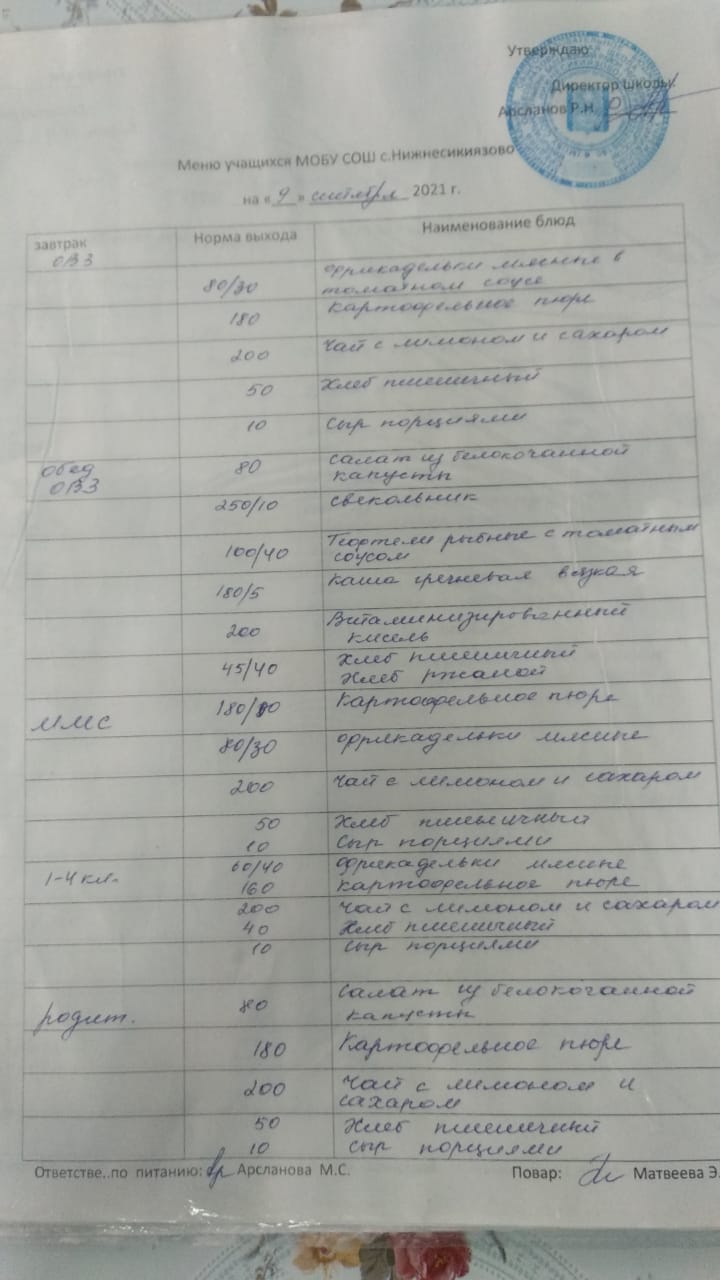 Утверждаю
Директор школы:
Арсланов Р.Н.
Меню учащихся МОБУ СОШ с.Нижнесикиязово
на « 9 » сентября 2021 г.
завтрак Норма выхода Наименование блюд
ОВЗ
80/30 фрикадельки мясные в
томатном соусе
180 Картофельное пюре
200 Чай с лимоном и сахаром
50 Хлеб пшеничный
10 Сыр порциями
обед 80 Салат из белокочанной
ОВЗ капусты
250/10 свекольник
100/40 Тефтели рыбные с томатным
соусом
180/5 Каша гречневая вязкая
200 Витаминизированный
кисель
45/40 Хлеб пшеничный
Хлеб ржаной
ММС 180/ Картофельное пюре
80/30 фрикадельки мясные
200 Чай с лимоном и сахаром
50 Хлеб пшеничный
10 Сыр порциями
1-4 кл. 60/40 фрикадельки мясные
160 картофельное пюре
200 Чай с лимоном и сахаром
40 Хлеб пшеничный
10 Сыр порциями
родит. 80 Салат из белокочанной
капусты
180 Картофельное пюре
200 Чай с лимоном и
сахаром
50 Хлеб пшеничный
10 сыр порциями
Ответстве..по питанию: Арсланова М.С. Повар: Матвеева Э.